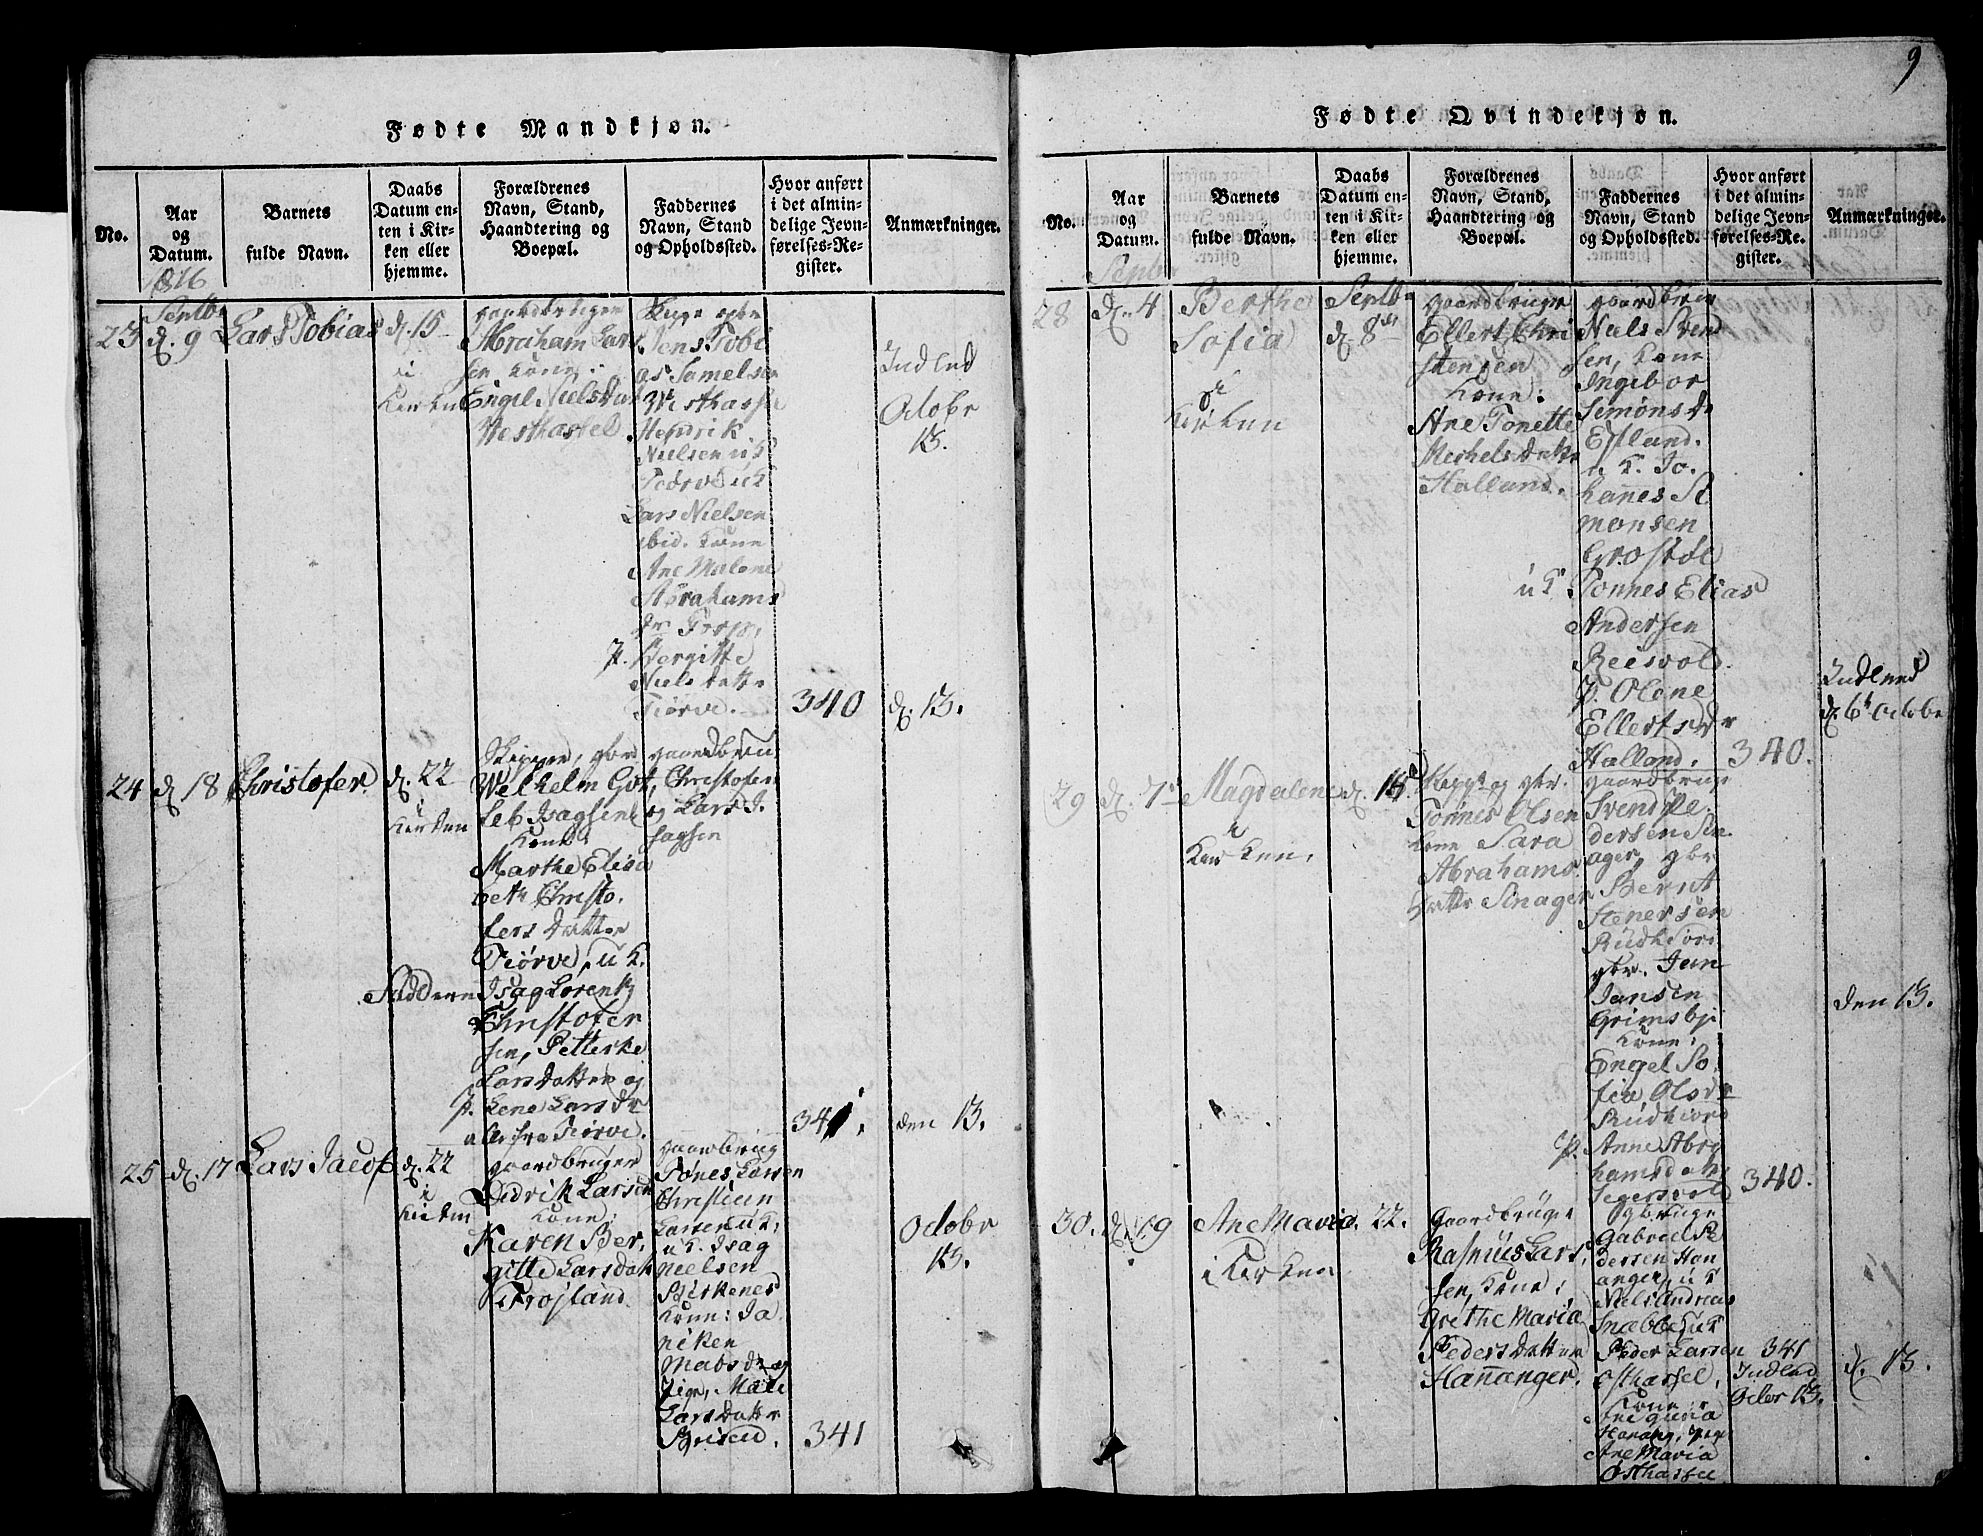 9
Fødte Mandkjøn.
No.
Aar
og
Datum.
Barnets
fulde Navn.
Daabs
Datum en-
ten i Kir-
ken eller
hjemme.
Forældrenes
Navn, Stand,
Haandtering og
Boepæl.
Faddernes
Navn, Stand
og Opholdssted.
Hvor anført
i det almin-
delige Jevn-
førelses-Re-
gister.
Anmærkninger.
1816
Septbr
23 d. 9
Lars Tobias
d. 15
i
Kirken
gaardbruger
Abraham Lar
sen Kone:
Engel Nielsdat
Westhassel
Jens Tobi
as Samelsen
Westhassel
Henrik
Nielsen u K
Tiørve u K
Lars Nielsen
ibid. Kone
Ane Malene
Abrahams
dr
p. Bergitte
Niels datter
Tiørve.
340
Indled
Octobr
13.
d. 13.
24 d. 18
Christofer
d. 22
i
Kirken
Welhelm Got
leb Isagsen
Kone
Marthe Elisa
beth Christo
fers datter
Tiørve, u K.
Fadderne
Isag Lorentz
Christofer
sen, Petterke
Larsdatter og
p. Lena Larsdr
alle fra Tiørve.
gaardbru
Christofer
og Lars I
sagsen
341.
den 13.
25 d. 17
Lars Jacob
d. 22
i
Kirken
gaardbruger
Didrik Larsen
Kone:
Karen Ber
gitte Larsdat
Trøjland
gaardbrug
Tønes Larsen
Christien
Larsen u K.
u K. Isag
Nielsen
Birkenes
Kone: Ja
niken
Mads dr og
Pige, Mali
Lars datter
341
Octobr
13.
Fødte Qvindekjøn.
No.
Aar
og
Datum.
Barnets
fulde Navn.
Daabs
Datum en-
ten i Kir-
ken eller
hjemme.
Forældrenes
Navn, Stand,
Haandtering og
Boepæl.
Faddernes
Navn, Stand
og Opholdssted.
Hvor anført
i det almin-
delige Jevn-
førelses-Re-
gister.
Anmærkninger.
Septbr
28 d. 4
Berthe
Sofia
i
Kirken
Septbr
d. 8de
gaardbruger
Ellert Chri
stensen
Kone:
Ane Tonette
Mechels datter
Halland.
gaardbru
Niels Svend
sen, Kone
Ingebor
Simonsdr
Estland.
u K. Jo
hannes Si
monsen
Grostøl
u K Tonnes Elias
Andersen
Reisvold.
p. Olene
Ellertsdr
Halland.
340.
Indlend
d. 6t Octobr
29 d. 7
Magdalene
i
Kirken,
d. 15
Tønnes Olsen
Kone Sara
Abrahams
datter Sinager
gaardbruge
Svend Pe
dersen Sin
ager, gbr
Bernt
Stenersen
Rudhiord
gbr. Jan
Jansen
Grimsby
Kone,
Engel So
fia Olsdr
Rudhiord
p. Anne Abra
hamsdatter
Segersvold
340.
den 13.
30. d. 19
Ane Maria
i Kirken
22.
Gaardbruge
Rasmus Lars
sen, Kone;
Grethe Maria
Peders datter
Hananger.
gbruge
Gabriel Pe
dersen Han
anger, u K
Niels Andreas
Snæbbe u K
Peder Larsen
Osthassel,
Kone:
Ane
Hanang, Pige
Ane Maria
Osthassel
341
Indled
Octbr 13.
d. 13.